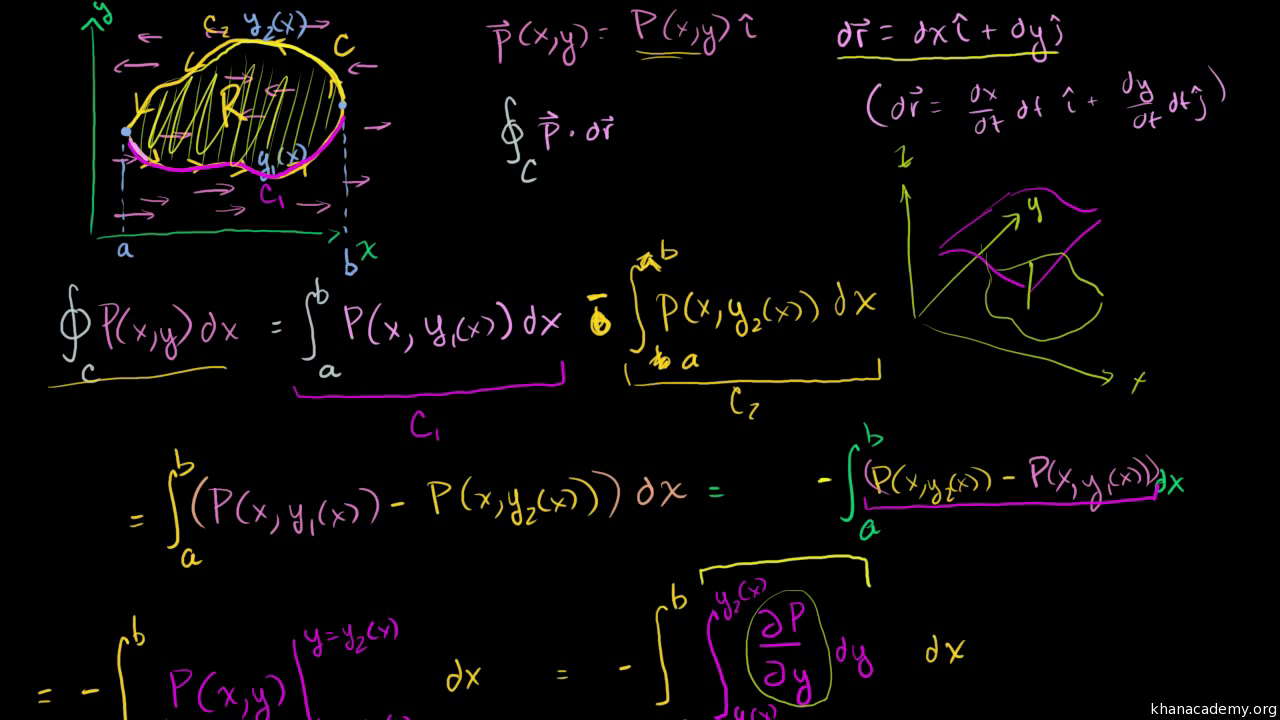 y
C₂ y₂(x)
C
R
y₁(x)
C₁
a
b x
P⃗(x,y) = P(x,y) î
dr⃗ = dx î + dy ĵ
(dr⃗ = dx/dt dt î + dy/dt dt ĵ)
∮_C P⃗ · dr⃗
z
y
x
∮_C P(x,y) dx = ∫_a^b P(x, y₁(x)) dx − ∫_a^b P(x, y₂(x)) dx
C₁
C₂
= ∫_a^b (P(x, y₁(x)) − P(x, y₂(x))) dx = − ∫_a^b (P(x, y₂(x)) − P(x, y₁(x))) dx
= − ∫^b P(x,y) |^{y=y₂(x)} dx = − ∫^b ∫_{y₁(x)}^{y₂(x)} ∂P/∂y dy dx
khanacademy.org